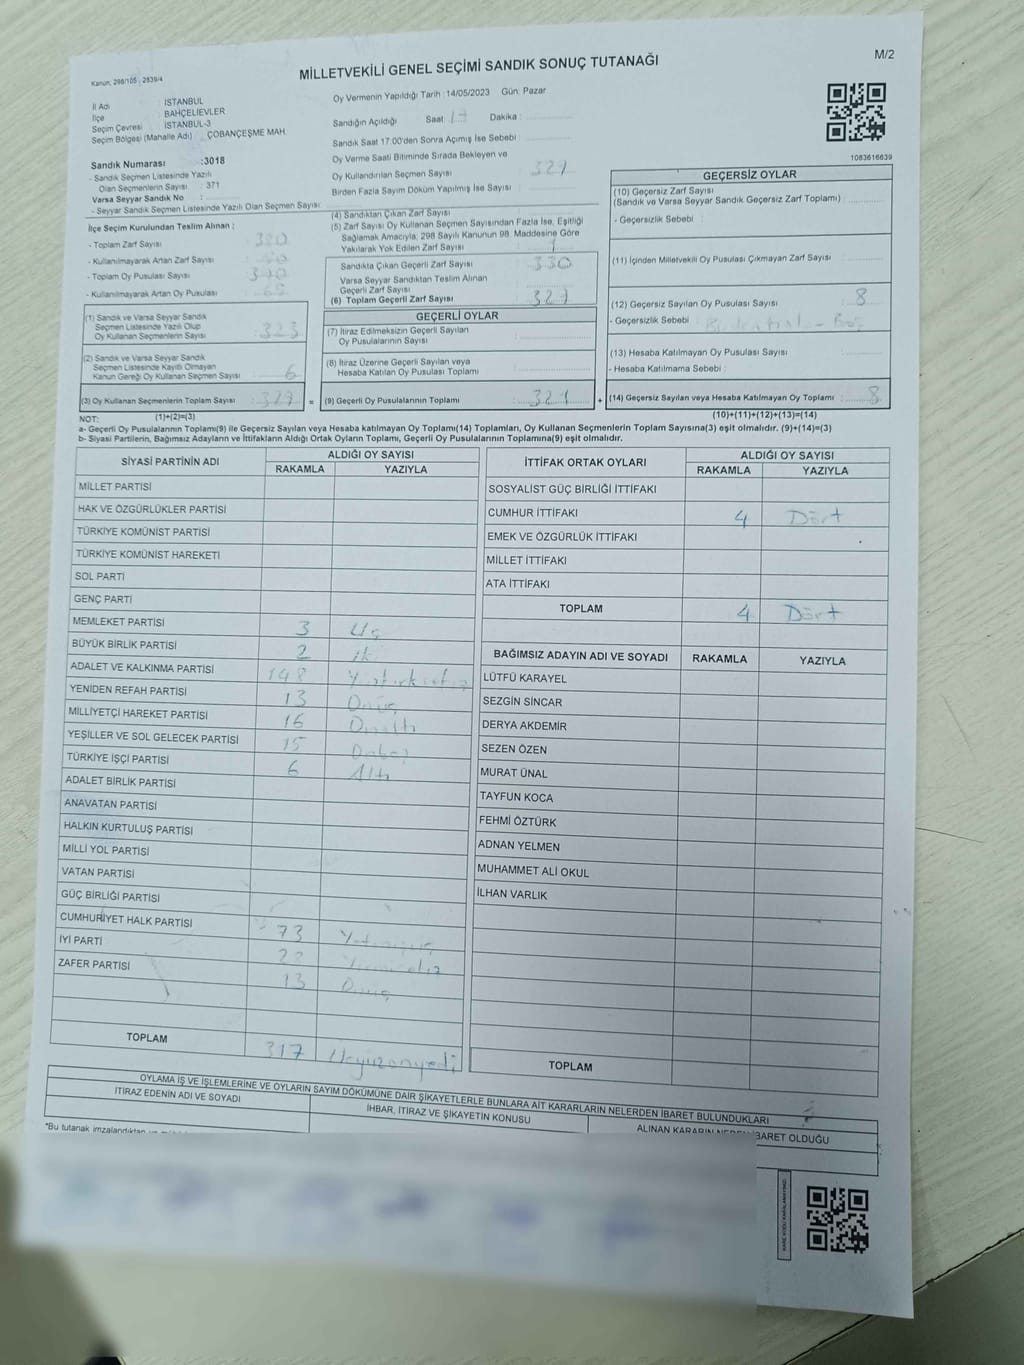 M/2
Kanun, 298/105 ; 2839/4
MİLLETVEKİLİ GENEL SEÇİMİ SANDIK SONUÇ TUTANAĞI
İl Adı : İSTANBUL
İlçe : BAHÇELİEVLER
Seçim Çevresi : İSTANBUL-3
Seçim Bölgesi (Mahalle Adı) : ÇOBANÇEŞME MAH.
Sandık Numarası :3018
- Sandık Seçmen Listesinde Yazılı
Olan Seçmenlerin Sayısı : 371
Varsa Seyyar Sandık No :
- Seyyar Sandık Seçmen Listesinde Yazılı Olan Seçmen Sayısı:
Oy Vermenin Yapıldığı Tarih : 14/05/2023 Gün: Pazar
Sandığın Açıldığı Saat : 17 Dakika :
Sandık Saat 17:00'den Sonra Açılmış İse Sebebi :
Oy Verme Saati Bitiminde Sırada Bekleyen ve
Oy Kullandırılan Seçmen Sayısı :
Birden Fazla Sayım Döküm Yapılmış İse Sayısı :
1083616639
İlçe Seçim Kurulundan Teslim Alınan ;
- Toplam Zarf Sayısı :
- Kullanılmayarak Artan Zarf Sayısı :
- Toplam Oy Pusulası Sayısı :
- Kullanılmayarak Artan Oy Pusulası :
(1) Sandık ve Varsa Seyyar Sandık
Seçmen Listesinde Yazılı Olup
Oy Kullanan Seçmenlerin Sayısı : 323
(2) Sandık ve Varsa Seyyar Sandık
Seçmen Listesinde Kayıtlı Olmayan
Kanun Gereği Oy Kullanan Seçmen Sayısı : 6
(3) Oy Kullanan Seçmenlerin Toplam Sayısı :
(4) Sandıktan Çıkan Zarf Sayısı :
(5) Zarf Sayısı Oy Kullanan Seçmen Sayısından Fazla İse, Eşitliği
Sağlamak Amacıyla; 298 Sayılı Kanunun 98. Maddesine Göre
Yakılarak Yok Edilen Zarf Sayısı : 1
Sandıkta Çıkan Geçerli Zarf Sayısı : 330
Varsa Seyyar Sandıktan Teslim Alınan
Geçerli Zarf Sayısı :
(6) Toplam Geçerli Zarf Sayısı :
GEÇERLİ OYLAR
(7) İtiraz Edilmeksizin Geçerli Sayılan
Oy Pusulalarının Sayısı :
(8) İtiraz Üzerine Geçerli Sayılan veya
Hesaba Katılan Oy Pusulası Toplamı :
= (9) Geçerli Oy Pusulalarının Toplamı : 321 +
GEÇERSİZ OYLAR
(10) Geçersiz Zarf Sayısı
(Sandık ve Varsa Seyyar Sandık Geçersiz Zarf Toplamı) :
- Geçersizlik Sebebi :
(11) İçinden Milletvekili Oy Pusulası Çıkmayan Zarf Sayısı :
(12) Geçersiz Sayılan Oy Pusulası Sayısı : 8
- Geçersizlik Sebebi :
(13) Hesaba Katılmayan Oy Pusulası Sayısı :
- Hesaba Katılmama Sebebi :
(14) Geçersiz Sayılan veya Hesaba Katılmayan Oy Toplamı : 8
NOT: (1)+(2)=(3)
(10)+(11)+(12)+(13)=(14)
a- Geçerli Oy Pusulalarının Toplamı(9) ile Geçersiz Sayılan veya Hesaba Katılmayan Oy Toplamı(14) Toplamları, Oy Kullanan Seçmenlerin Toplam Sayısına(3) eşit olmalıdır. (9)+(14)=(3)
b- Siyasi Partilerin, Bağımsız Adayların ve İttifakların Aldığı Ortak Oyların Toplamı, Geçerli Oy Pusulalarının Toplamına(9) eşit olmalıdır.
SİYASİ PARTİNİN ADI
ALDIĞI OY SAYISI
RAKAMLA YAZIYLA
MİLLET PARTİSİ
HAK VE ÖZGÜRLÜKLER PARTİSİ
TÜRKİYE KOMÜNİST PARTİSİ
TÜRKİYE KOMÜNİST HAREKETİ
SOL PARTİ
GENÇ PARTİ
MEMLEKET PARTİSİ 3 Üç
BÜYÜK BİRLİK PARTİSİ 2 İki
ADALET VE KALKINMA PARTİSİ 148
YENİDEN REFAH PARTİSİ 13 Onüç
MİLLİYETÇİ HAREKET PARTİSİ 16 Onaltı
YEŞİLLER VE SOL GELECEK PARTİSİ 15 Onbeş
TÜRKİYE İŞÇİ PARTİSİ 6 Altı
ADALET BİRLİK PARTİSİ
ANAVATAN PARTİSİ
HALKIN KURTULUŞ PARTİSİ
MİLLİ YOL PARTİSİ
VATAN PARTİSİ
GÜÇ BİRLİĞİ PARTİSİ
CUMHURİYET HALK PARTİSİ 73 Yetmişüç
İYİ PARTİ
ZAFER PARTİSİ 13 Onüç
TOPLAM 317 Üçyüzonyedi
İTTİFAK ORTAK OYLARI
ALDIĞI OY SAYISI
RAKAMLA YAZIYLA
SOSYALİST GÜÇ BİRLİĞİ İTTİFAKI
CUMHUR İTTİFAKI 4 Dört
EMEK VE ÖZGÜRLÜK İTTİFAKI
MİLLET İTTİFAKI
ATA İTTİFAKI
TOPLAM 4 Dört
BAĞIMSIZ ADAYIN ADI VE SOYADI RAKAMLA YAZIYLA
LÜTFÜ KARAYEL
SEZGİN SİNCAR
DERYA AKDEMİR
SEZEN ÖZEN
MURAT ÜNAL
TAYFUN KOCA
FEHMİ ÖZTÜRK
ADNAN YELMEN
MUHAMMET ALİ OKUL
İLHAN VARLIK
TOPLAM
OYLAMA İŞ VE İŞLEMLERİNE VE OYLARIN SAYIM DÖKÜMÜNE DAİR ŞİKAYETLERLE BUNLARA AİT KARARLARIN NELERDEN İBARET BULUNDUKLARI
İTİRAZ EDENİN ADI VE SOYADI
İHBAR, İTİRAZ VE ŞİKAYETİN KONUSU
ALINAN KARARIN NEDEN İBARET OLDUĞU
*Bu tutanak imzalandıktan
KARE KODU KARALAMAYINIZ!